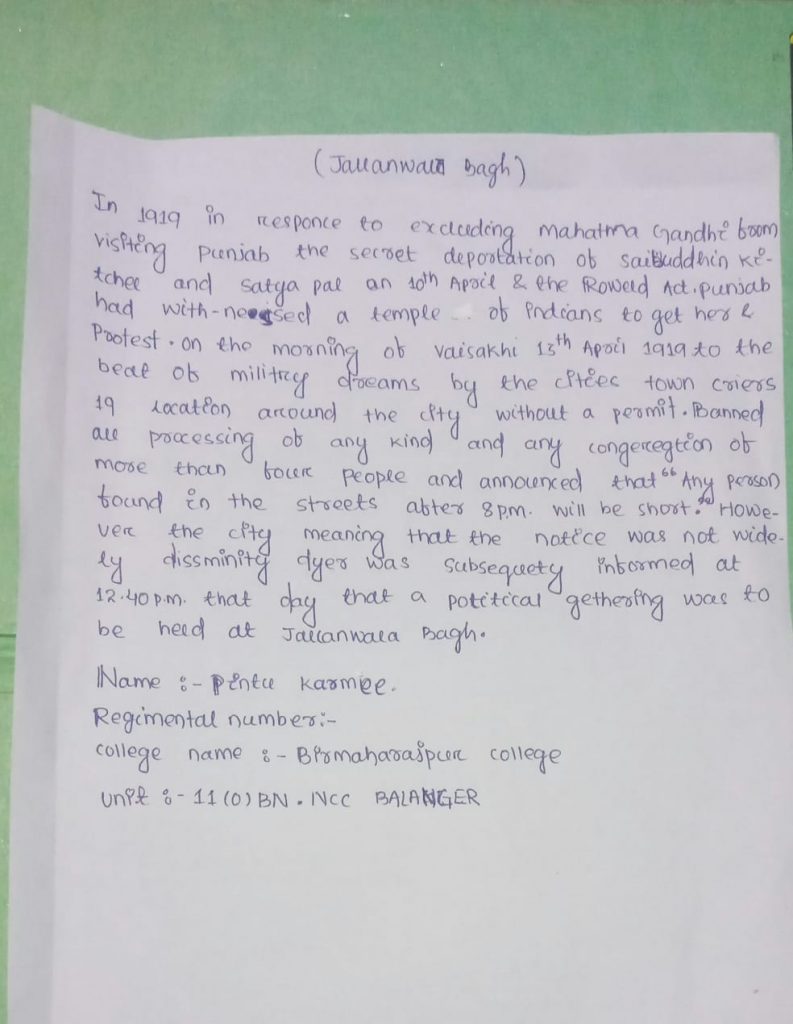 (Jallanwala Bagh)
In 1919 in responce to excluding Mahatma Gandhi from
visiting Punjab the secret deportation of saifuddhin Ki-
tchee and satya pal an 10th April & the Roweld Act. punjab
had with-nessed a temple of Indians to get her &
Protest. on the morning of Vaisakhi 13th April 1919 to the
beat of militrey dreams by the citiees town criers
19 location around the city without a permit. Banned
all processing of any kind and any congeregtion of
more than four People and announced that "Any person
found in the streets after 8 p.m. will be short." Howe-
ver the city meaning that the notice was not wide-
ly dissminity dyer was subsequety informed at
12.40 p.m. that day that a potitical gethering was to
be held at Jallanwala Bagh.
Name :- Pintu Karmee.
Regimental number:-
college name :- Birmaharajpur college
Unit :- 11 (O) BN. NCC BALANGER